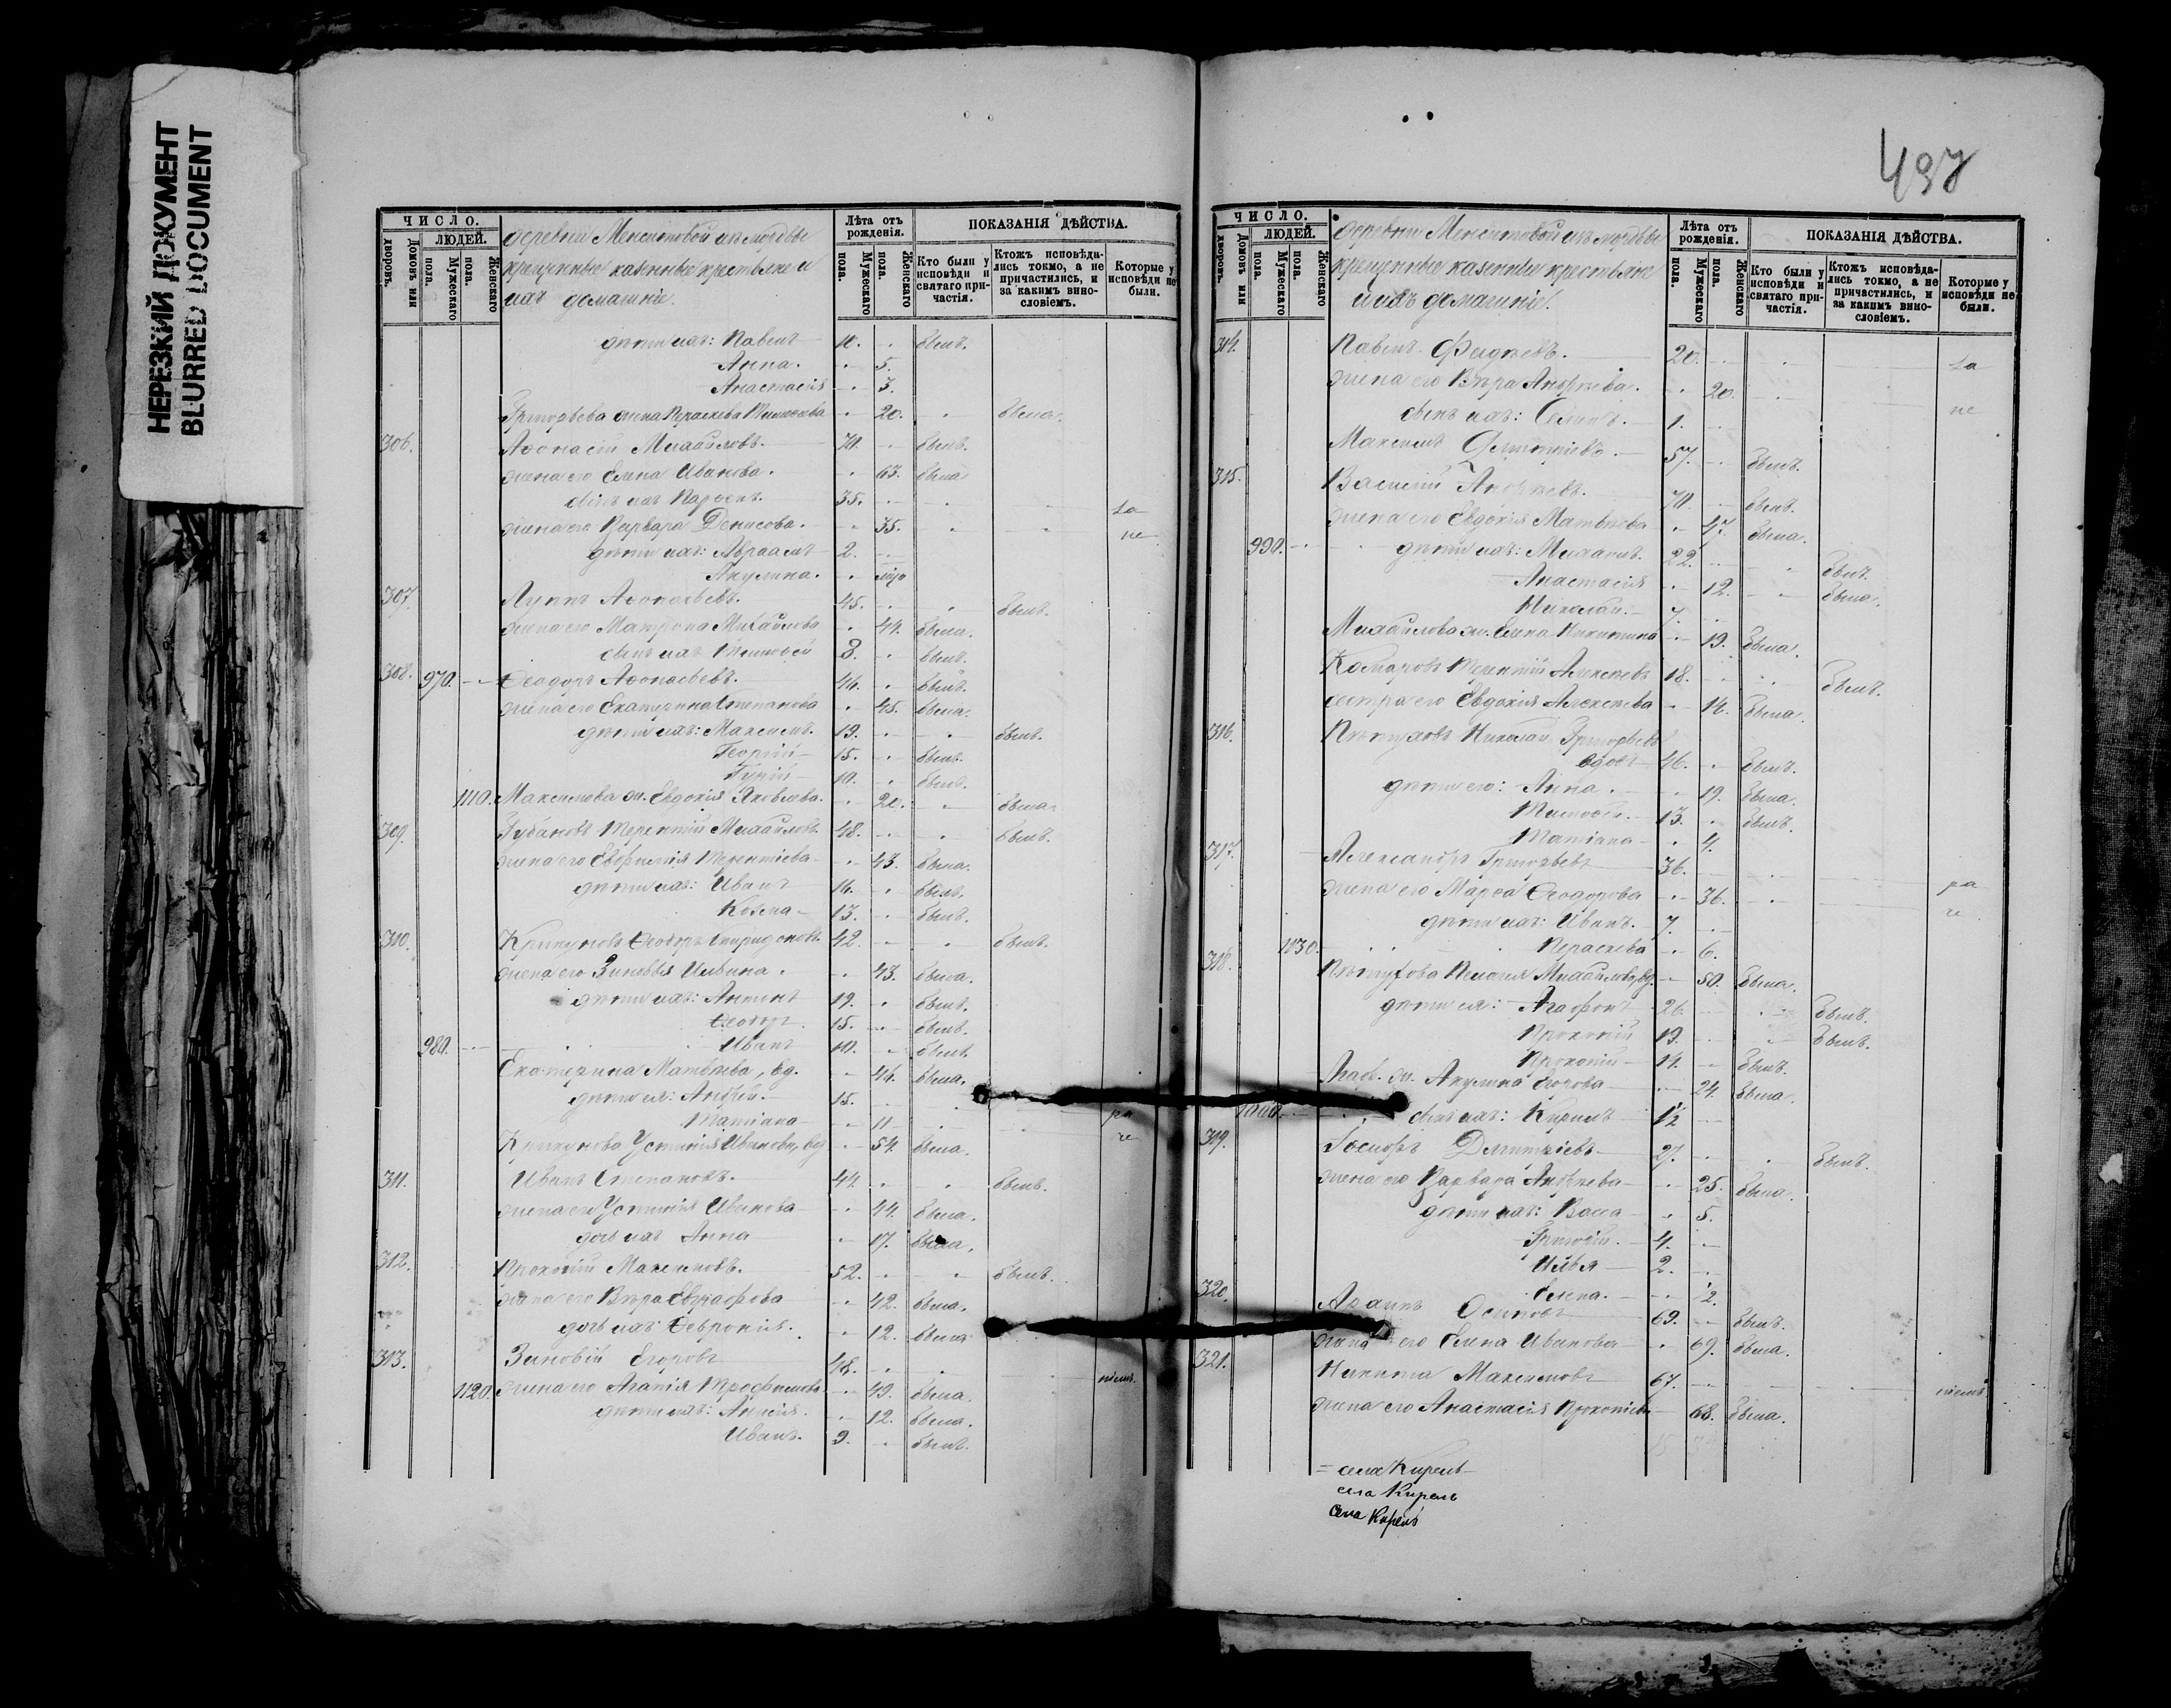 НЕРЕЗКИЙ ДОКУМЕНТ
BLURRED DOCUMENT
ЧИСЛО.
Домовъ или дворовъ.
ЛЮДЕЙ.
Мужескаго пола.
Женскаго пола.
деревни Менситовой изъ мордвы
крещенные казенные крестьяне и
ихъ домашніе.
Лѣта отъ рожденія.
Мужескаго пола.
Женскаго пола.
ПОКАЗАНІЯ ДѢЙСТВА.
Кто были у исповѣди и святаго причастія.
Ктожъ исповѣдались токмо, а не причастились, и за какимъ винословіемъ.
Которые у исповѣди не были.
дѣти ихъ: Павелъ 10. былъ.
Анна. 5.
Анастасія 3.
Григорьева жена Параскева 20. была.
306. Аѳонасій Михайловъ. 70. былъ.
жена его Елена Иванова. 63. была
сынъ ихъ Парѳенъ. 35. за
жена его Варвара Денисова. 35. не
дѣти ихъ: Авраамъ 2.
Акулина.
307. Луппъ Аѳонасьевъ. 45. былъ.
жена его Матрона Михайлова 44. была.
сынъ ихъ Тимоѳей 8. былъ.
308. 970. Ѳеодоръ Аѳонасьевъ. 46. былъ.
жена его Екатерина Степанова 45. была.
дѣти ихъ: Максимъ. 19. былъ.
Георгій 15. былъ.
Гурій 10. былъ.
1110. Максимова ж. Евдокія Яковлева. 20. была.
309. Губановъ Терентій Михайловъ 48. былъ.
жена его Евфимія Терентіева 43. была.
дѣти ихъ: Иванъ 16. былъ.
Козма 13. былъ.
310. Крикуновъ Ѳеодоръ Спиридоновъ. 42. былъ.
жена его Зиновья Ильина. 43. была.
дѣти ихъ: Антонъ 19. былъ.
Ѳеодоръ. 15. былъ.
980. Иванъ 10. былъ.
Екатерина Матвѣева, вд. 46. была.
дѣти ея: Андрей. 15.
Татіана 11. ра
Крикунова Устинія Иванова, вд 54. была. че
311. Иванъ Степановъ. 44. былъ.
жена его Устинія Иванова 44. была.
дочь ихъ Анна 17. была.
312. Прокопій Максимовъ. 52. былъ.
жена его Вѣра Евграфова 42. была.
дочь ихъ Ѳевронія. 12. была
313. Зиновій Егоровъ 48.
1120. жена его Агапія Трофимова. 49. была.
дѣти ихъ: Анисія. 12. была.
Иванъ. 9. былъ.
437
ЧИСЛО.
Домовъ или дворовъ.
ЛЮДЕЙ.
Мужескаго пола.
Женскаго пола.
деревни Менситовой изъ мордвы
крещенные казенные крестьяне
и ихъ домашніе.
Лѣта отъ рожденія.
Мужескаго пола.
Женскаго пола.
ПОКАЗАНІЯ ДѢЙСТВА.
Кто были у исповѣди и святаго причастія.
Ктожъ исповѣдались токмо, а не причастились, и за какимъ винословіемъ.
Которые у исповѣди не были.
314. Павелъ 20. за
жена его Вѣра Андреева. 20. не
сынъ ихъ: 1.
Максимъ 57. былъ.
315. Василій Андреевъ. 70. былъ.
жена его Евдокія Матвѣева 47. была.
990. дѣти ихъ: Михаилъ. 22. былъ.
Анастасія 12. была.
Николай. 7.
Михайлова ж. Елена Никитина 19. была.
Комаровъ Терентій Алексѣевъ 18. былъ.
сестра его Евдокія Алексѣева 14. была.
316. Пѣтуховъ Николай Григорьевъ
вдовъ 46. былъ.
дѣти его: Анна. 19. была.
Тимоѳей. 13. былъ.
Татіана 4.
317. Александръ Григорьевъ 36.
жена его Марѳа Ѳеодорова 36. ра
дѣти ихъ: Иванъ. 7. че
1130. Параскева 6.
318. Пѣтухова Пелагея Михайлова, вд. 50. была.
дѣти ея: Агафонъ 26. былъ.
Прокопій 19. былъ.
Прокопій 14. былъ.
Агаф. ж. Акулина Егорова 24. была.
1000. сынъ ихъ: Кирилъ 1/2
319. Дмитріевъ 27. былъ.
жена его Варвара Андреева 25. была.
дѣти ихъ: Васса 5.
Григорій. 4.
Илья 2.
Елена. 1/2.
320. Осиповъ 69. былъ.
жена его Елена Иванова 69. была.
321. Никита Максимовъ 67.
жена его Анастасія Прокопіева 68. была.
= села Кирелъ
села Кирель
села Кирелъ